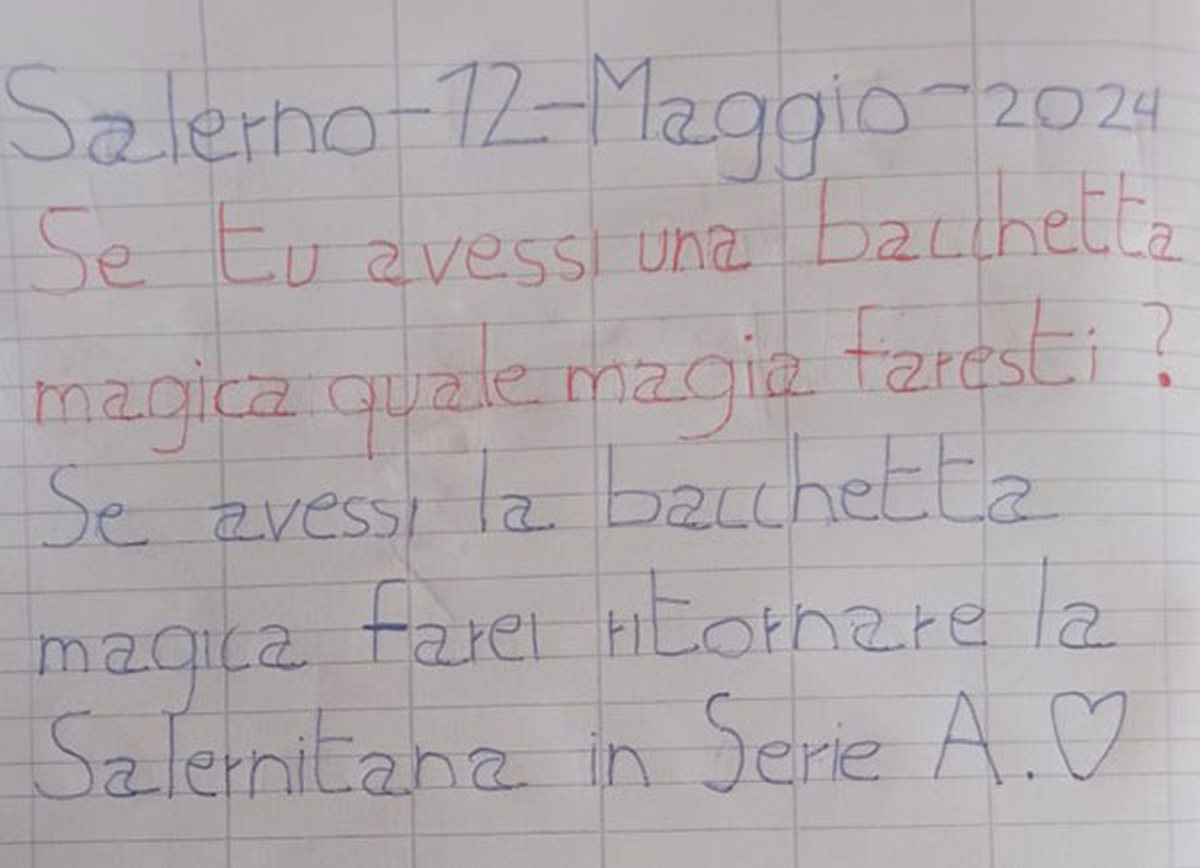 Salerno-12-Maggio-2024
Se tu avessi una bacchetta
magica quale magia faresti?
Se avessi la bacchetta
magica farei ritornare la
Salernitana in Serie A.♡